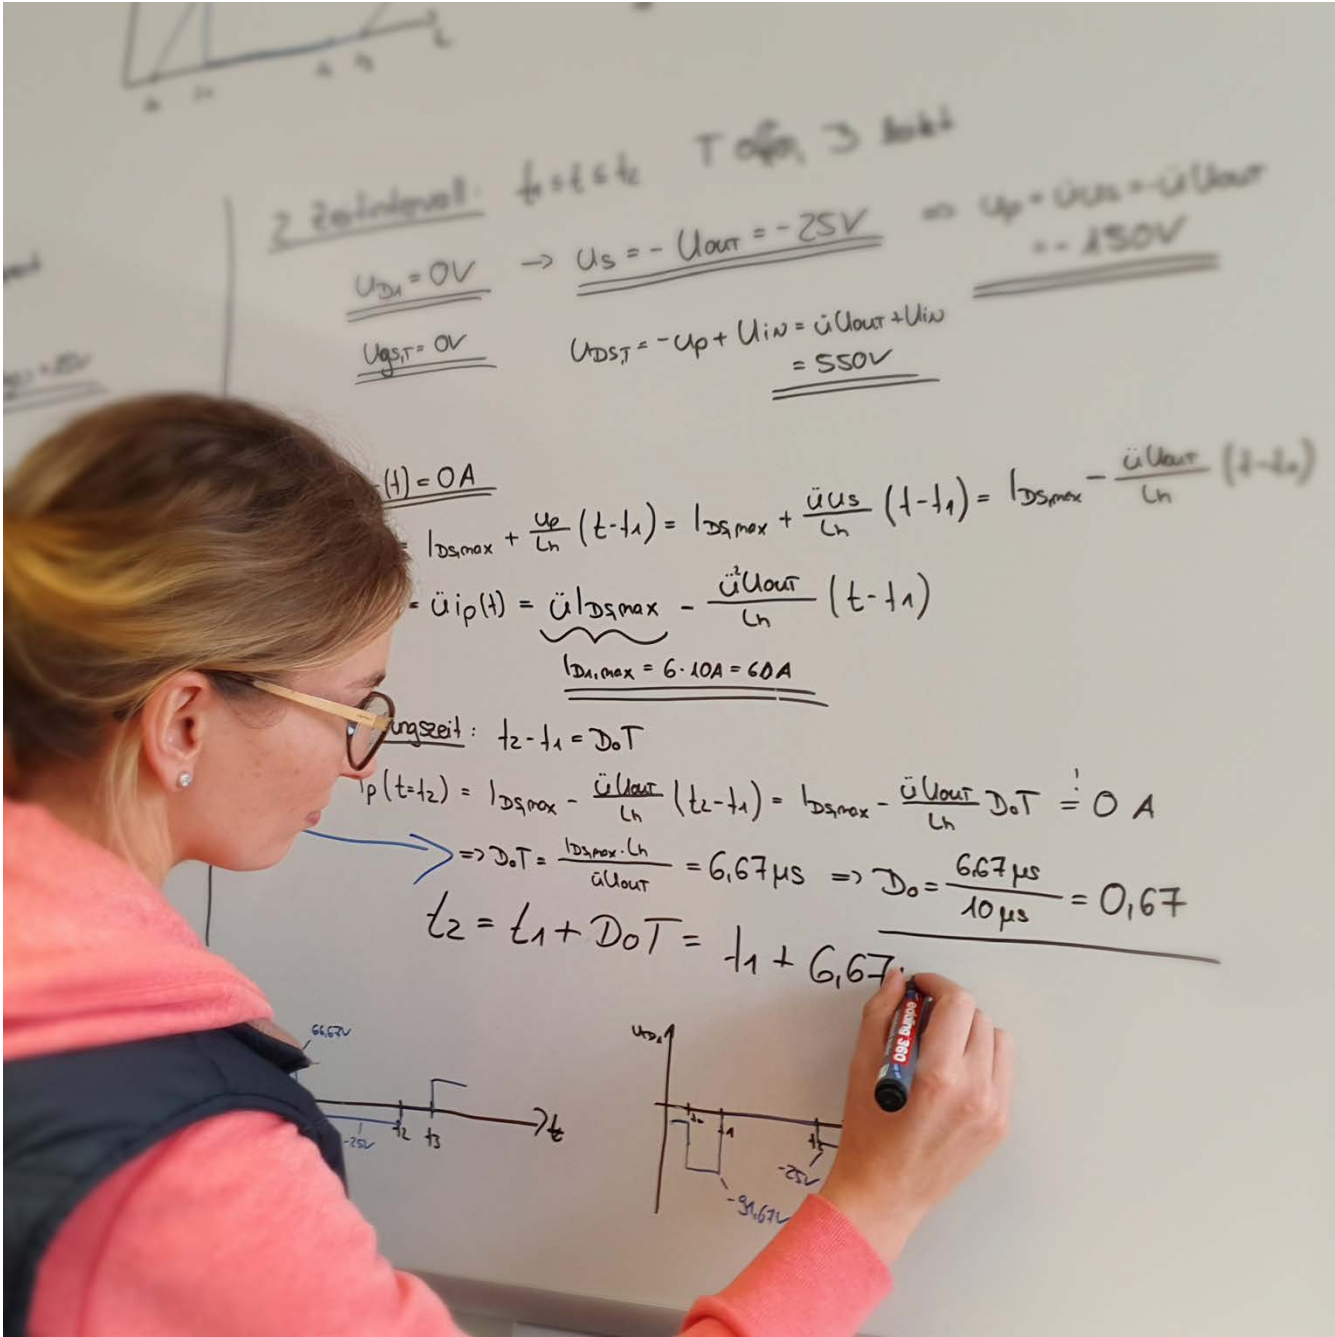 2 Zeitintervall: t₁ ≤ t ≤ t₂ T offen, D leitet
U_D1 = 0V → U_S = - U_OUT = - 25V ⇒ U_p = üU_S = -üU_OUT
= - 150V
U_gS,T = 0V U_DS,T = -U_p + U_IN = üU_OUT + U_IN
= 550V
(t) = 0A
= I_DS,max + U_p/L_h (t-t₁) = I_DS,max + üU_S/L_h (t-t₁) = I_DS,max - üU_OUT/L_h (t-t₁)
= ü i_p(t) = üI_DS,max - ü²U_OUT/L_h (t-t₁)
I_D1,max = 6·10A = 60A
ungszeit: t₂-t₁ = D₀T
p(t=t₂) = I_DS,max - üU_OUT/L_h (t₂-t₁) = I_DS,max - üU_OUT/L_h D₀T =! 0 A
⇒ D₀T = I_DS,max·L_h/üU_OUT = 6,67µs ⇒ D₀ = 6,67µs/10µs = 0,67
t₂ = t₁ + D₀T = t₁ + 6,67
66,67V
-25V
t₂ t₃ t
U_D1
t₀ t₁
-25V
-91,67V
edding 360